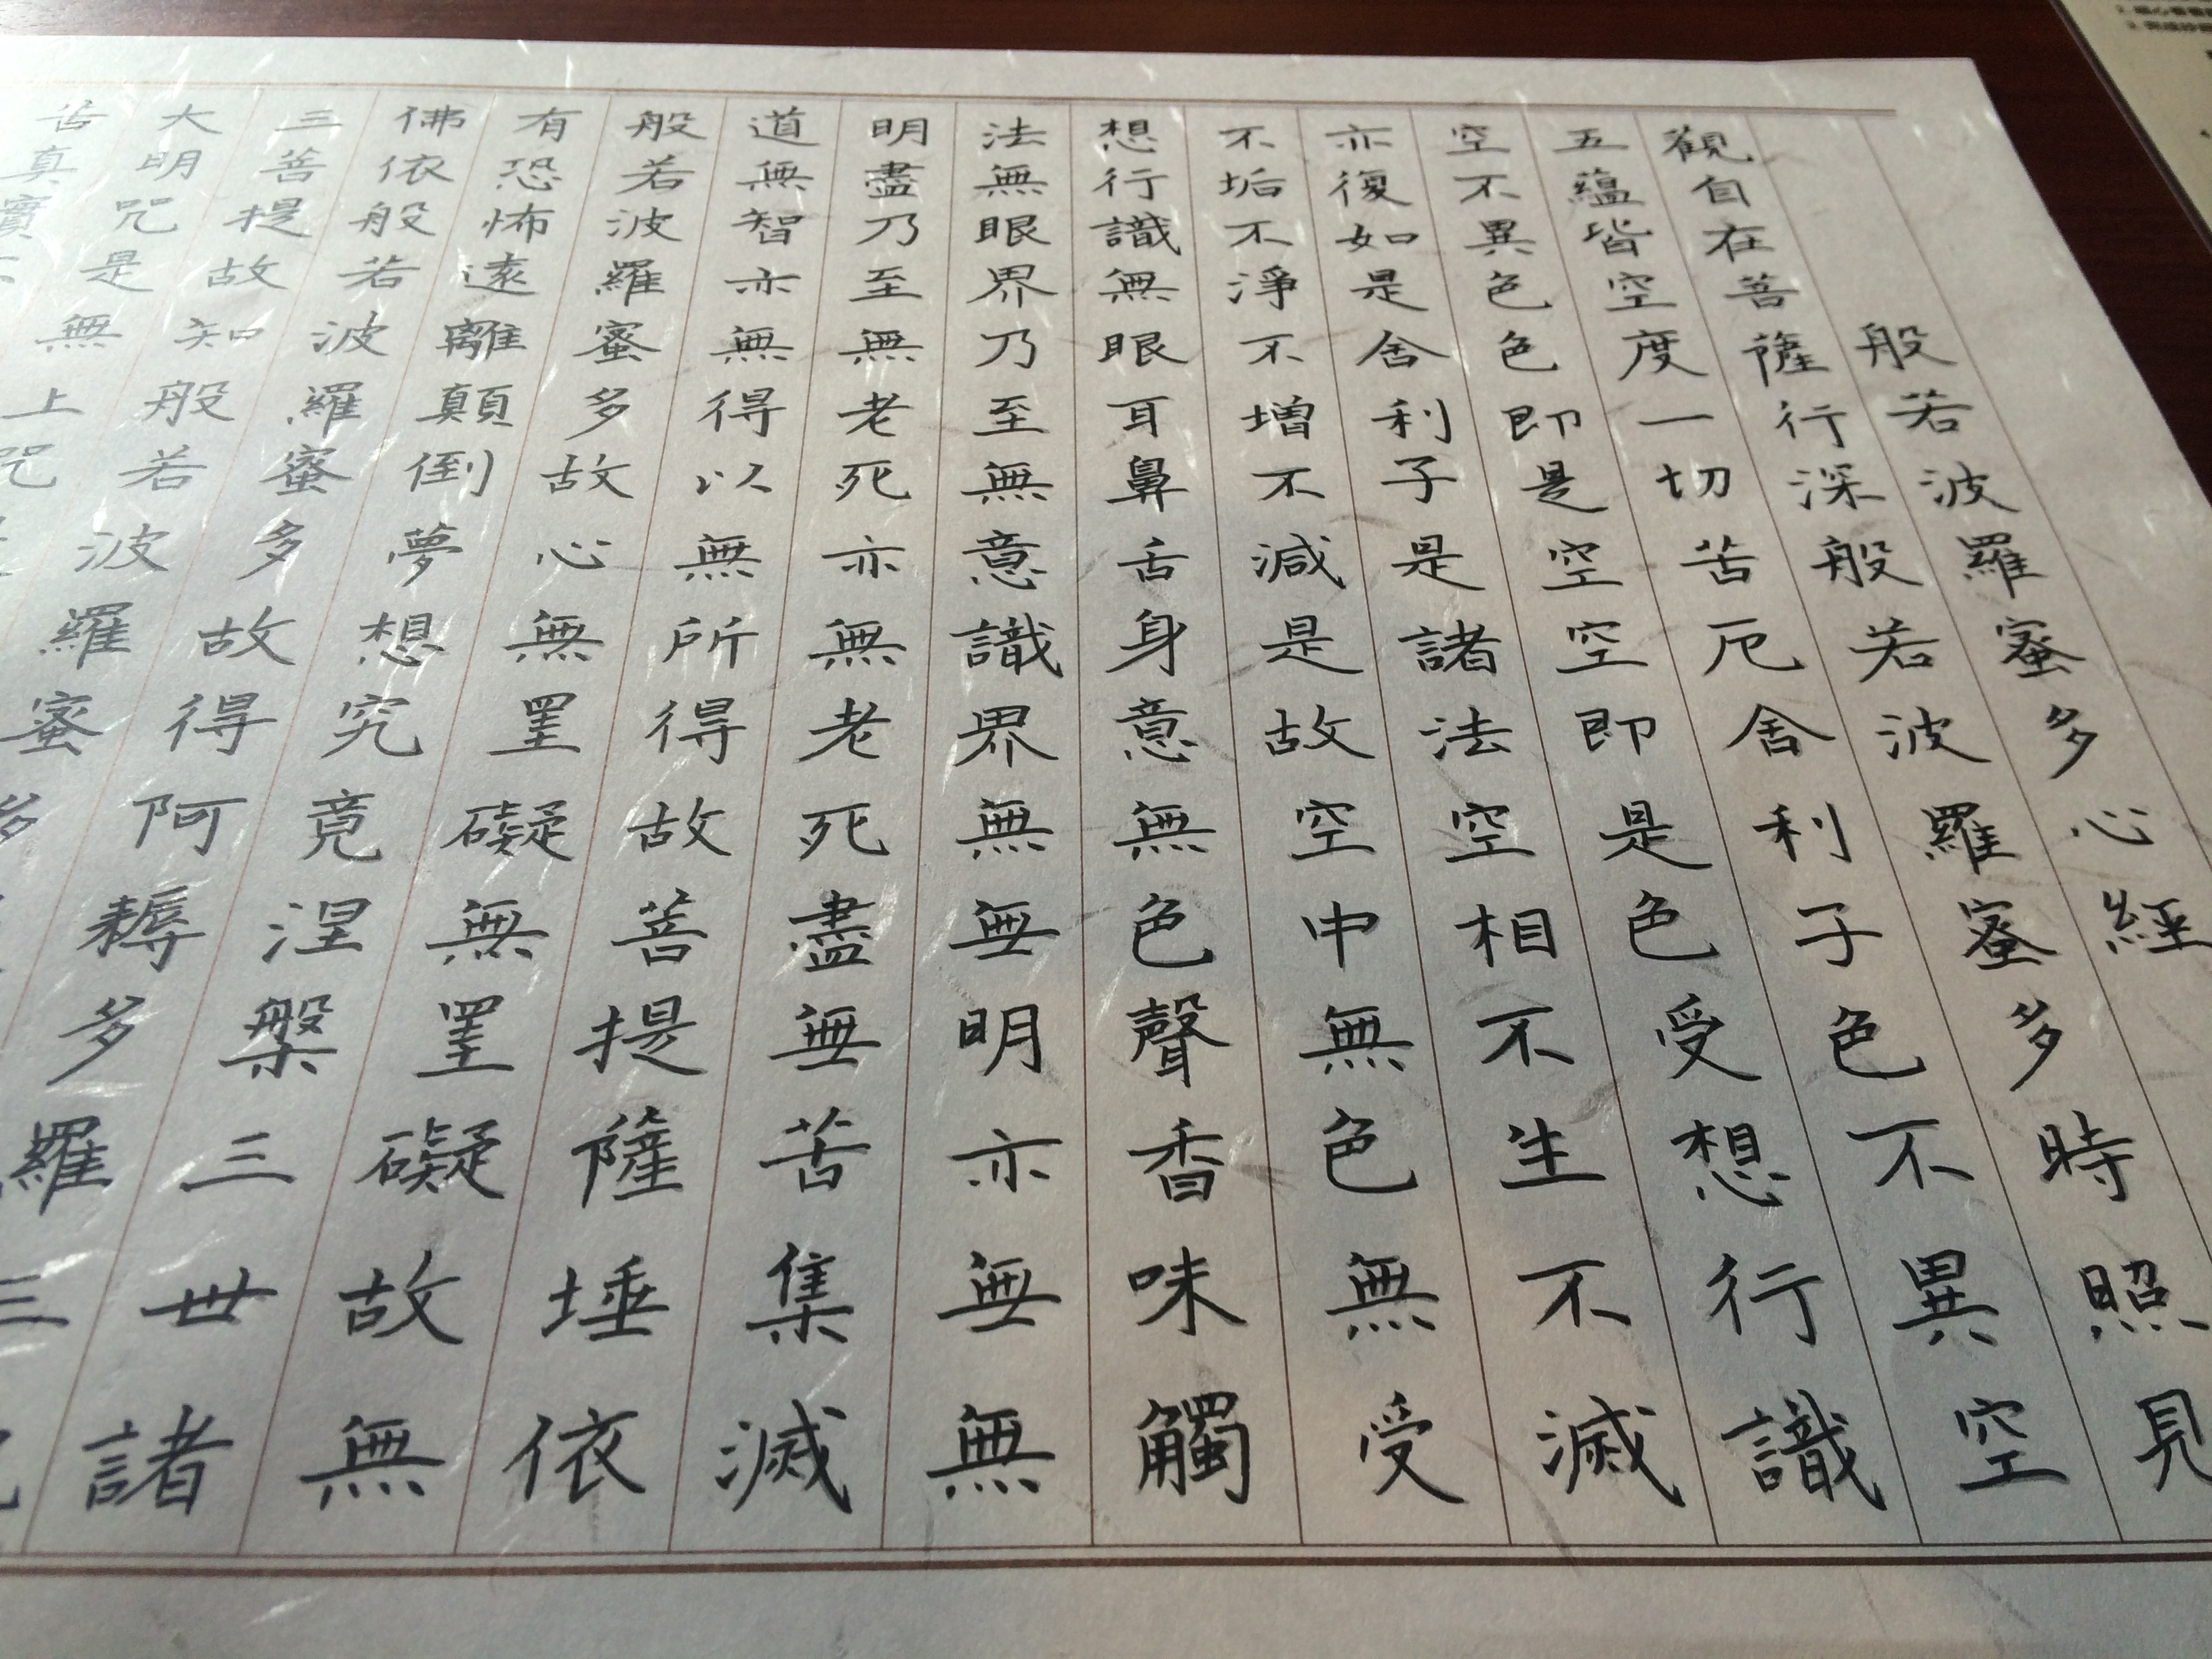 般若波羅蜜多心經
觀自在菩薩行深般若波羅蜜多時照見
五蘊皆空度一切苦厄舍利子色不異空
空不異色色即是空空即是色受想行識
亦復如是舍利子是諸法空相不生不滅
不垢不淨不增不減是故空中無色無受
想行識無眼耳鼻舌身意無色聲香味觸
法無眼界乃至無意識界無無明亦無無
明盡乃至無老死亦無老死盡無苦集滅
道無智亦無得以無所得故菩提薩埵依
般若波羅蜜多故心無罣礙無罣礙故無
有恐怖遠離顛倒夢想究竟涅槃三世諸
佛依般若波羅蜜多故得阿耨多羅三
三菩提故知般若波羅蜜多
大明咒是無上咒
苦真實